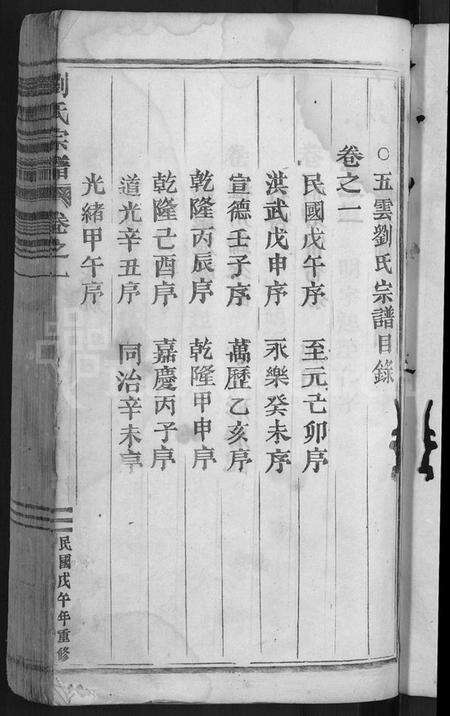 ○五雲劉氏宗譜目錄
卷之一
民國戊午序　至元己卯序
洪武戊申序　永樂癸未序
宣德壬子序　萬歷乙亥序
乾隆丙辰序　乾隆甲申序
乾隆己酉序　嘉慶丙子序
道光辛丑序　同治辛未序
光緒甲午序
劉氏宗譜　卷之一
民國戊午年重修